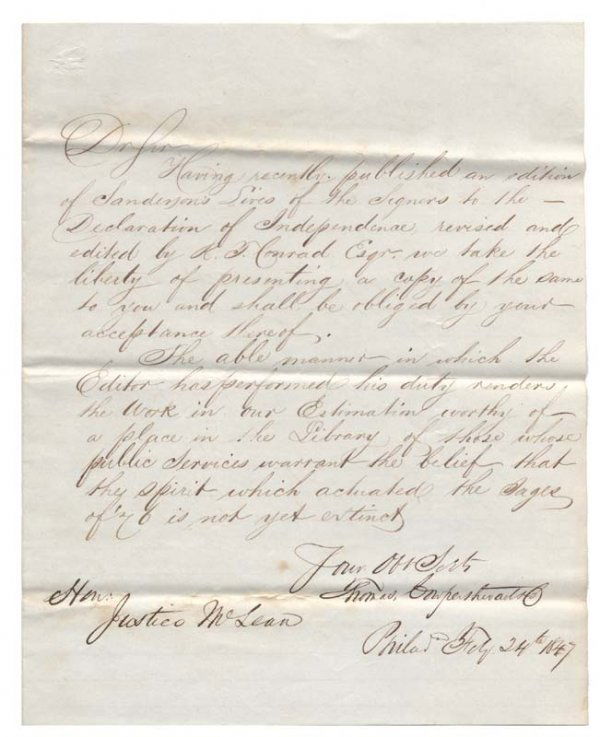 Dr Sir
Having recently published an edition
of Sanderson's Lives of the Signers to the —
Declaration of Independence, revised and
edited by R. T. Conrad Esqr. we take the
liberty of presenting a copy of the same
to you and shall be obliged by your
acceptance thereof.
The able manner in which the
Editor has performed his duty renders
the Work in our Estimation worthy of —
a place in the Library of those whose
public Services warrant the belief that
the spirit which actuated the Sages
of '76 is not yet extinct
Your Obt Servts
Thomas, Cowperthwait & Co
Hon:
Justice McLean
Philada Feby 24th 1847